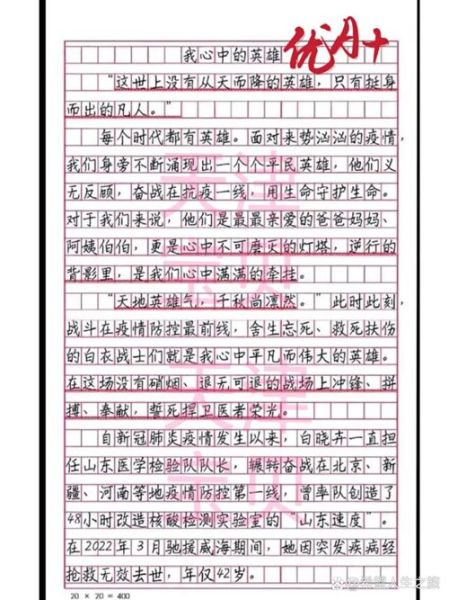 我心中的英雄
优A+
“这世上没有从天而降的英雄，只有挺身
而出的凡人。”
每个时代都有英雄。面对来势汹汹的疫情，
我们身旁不断涌现出一个个平民英雄，他们义
无反顾，奋战在抗疫一线，用生命守护生命。
对于我们来说，他们是最最亲爱的爸爸妈妈、
阿姨伯伯，更是心中不可磨灭的灯塔，逆行的
背影里，是我们心中满满的牵挂。
“天地英雄气，千秋尚凛然。”此时此刻，
战斗在疫情防控最前线，舍生忘死、救死扶伤
的白衣战士们就是我心中平凡而伟大的英雄。
在这场没有硝烟、退无可退的战场上冲锋、拼
搏、奉献，誓死捍卫医者荣光。
自新冠肺炎疫情发生以来，白晓卉一直担
任山东医学检验队队长，辗转奋战在北京、新
疆、河南等地疫情防控第一线，曾率队创造了
48小时改造核酸检测实验室的“山东速度”。
在2022年3月驰援威海期间，她因突发疾病经
抢救无效去世，年仅42岁。
20 × 20 = 400